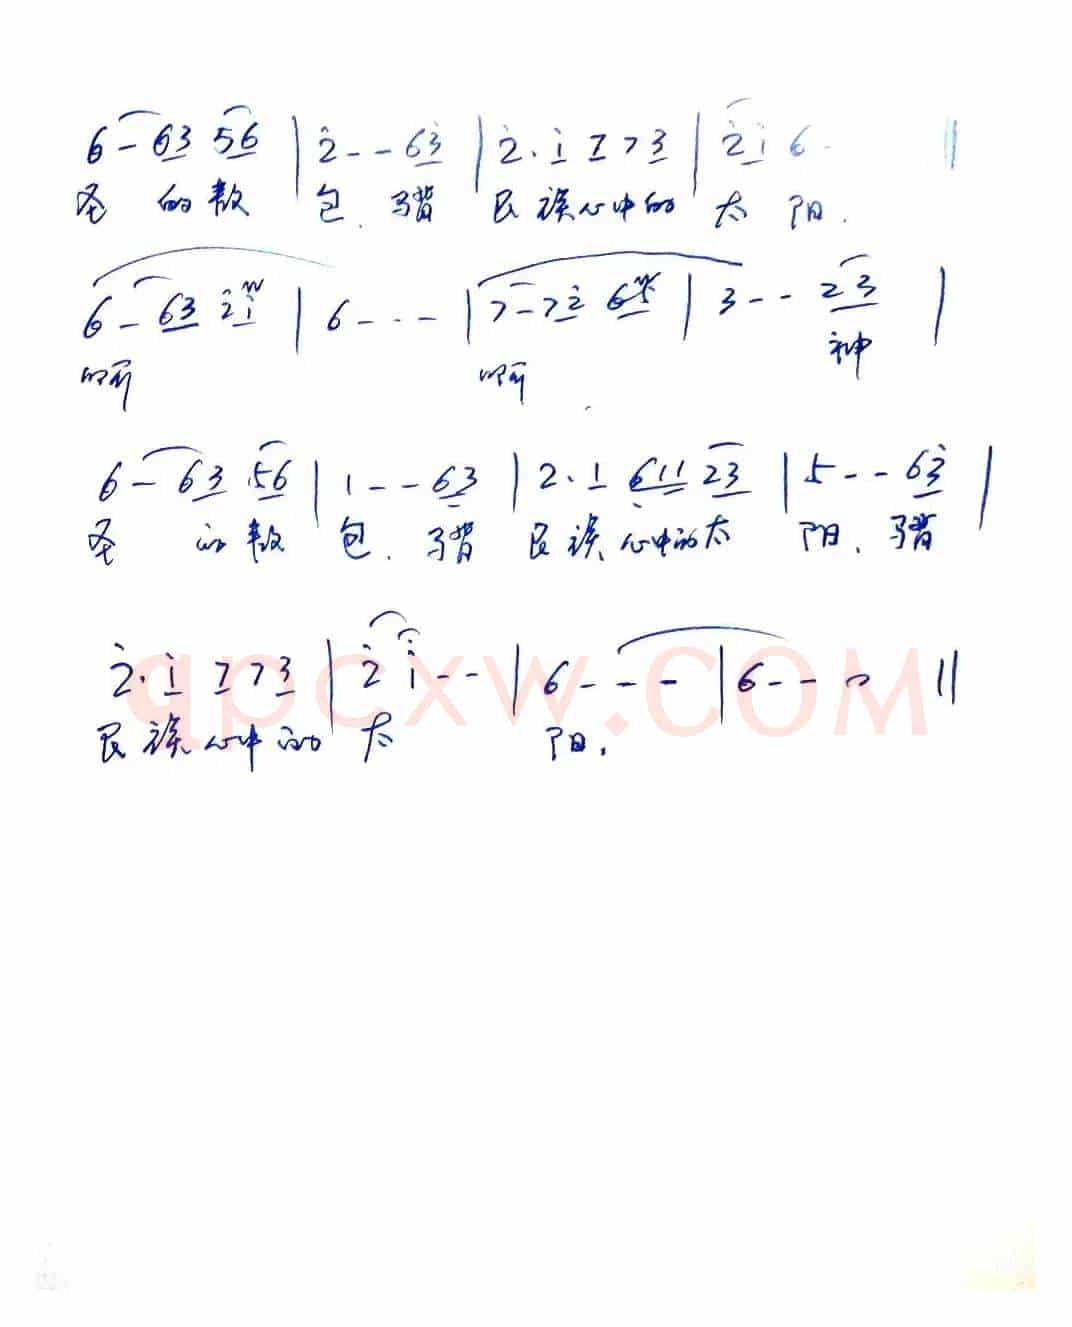 6 - 63 56 | 2̇ - - 63̇ | 2̇. 1̇ 7 7 3̇ | 2̇ 1̇ 6 - ‖
圣 的敖 包. 马背 民族心中的 太 阳.
6 - 63 2̇1̇ | 6 - - - | 7 - 72̇ 65 | 3 - - 23 |
啊 啊 神
6 - 63 56 | 1 - - 63 | 2. 1 611 23 | 5 - - 63̇ |
圣 的敖 包. 马背 民族心中的太 阳. 马背
2̇. 1̇ 7 7 3̇ | 2̇ 1̇ - - | 6 - - - | 6 - - 0 ‖
民族心中的 太 阳.
qpcxw.COM